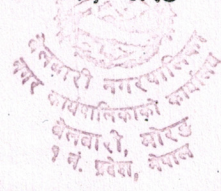 बेलवारी नगरपालिका
नगर कार्यपालिकाको कार्यालय
बेलवारी, मोरङ
१ नं. प्रदेश, नेपाल